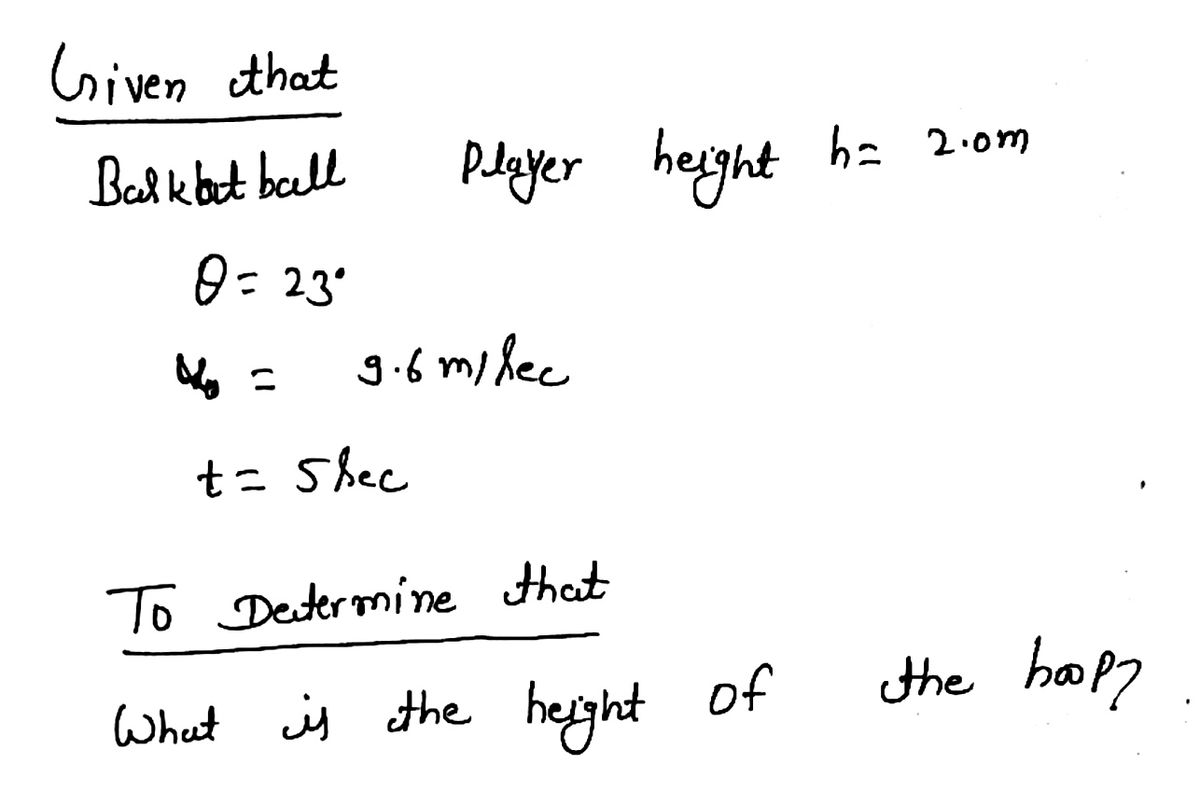 Given that
Basketball Player height h= 2.0m
θ= 23°
= 9.6 m/sec
t= 5 sec
To Determine that
What is the height of the hoop?